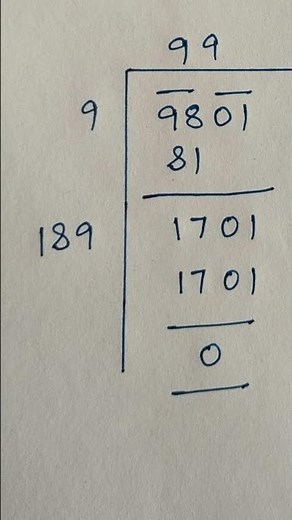 99
9 9801
81
189 1701
1701
0